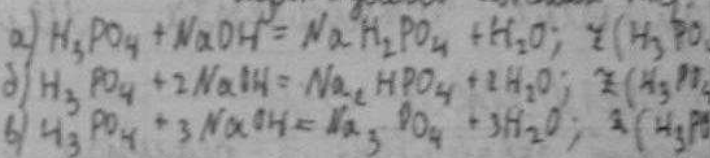 а) H₃PO₄ + NaOH = NaH₂PO₄ + H₂O; z(H₃PO₄
б) H₃PO₄ + 2NaOH = Na₂HPO₄ + 2H₂O; z(H₃PO₄
в) H₃PO₄ + 3NaOH = Na₃PO₄ + 3H₂O; z(H₃PO